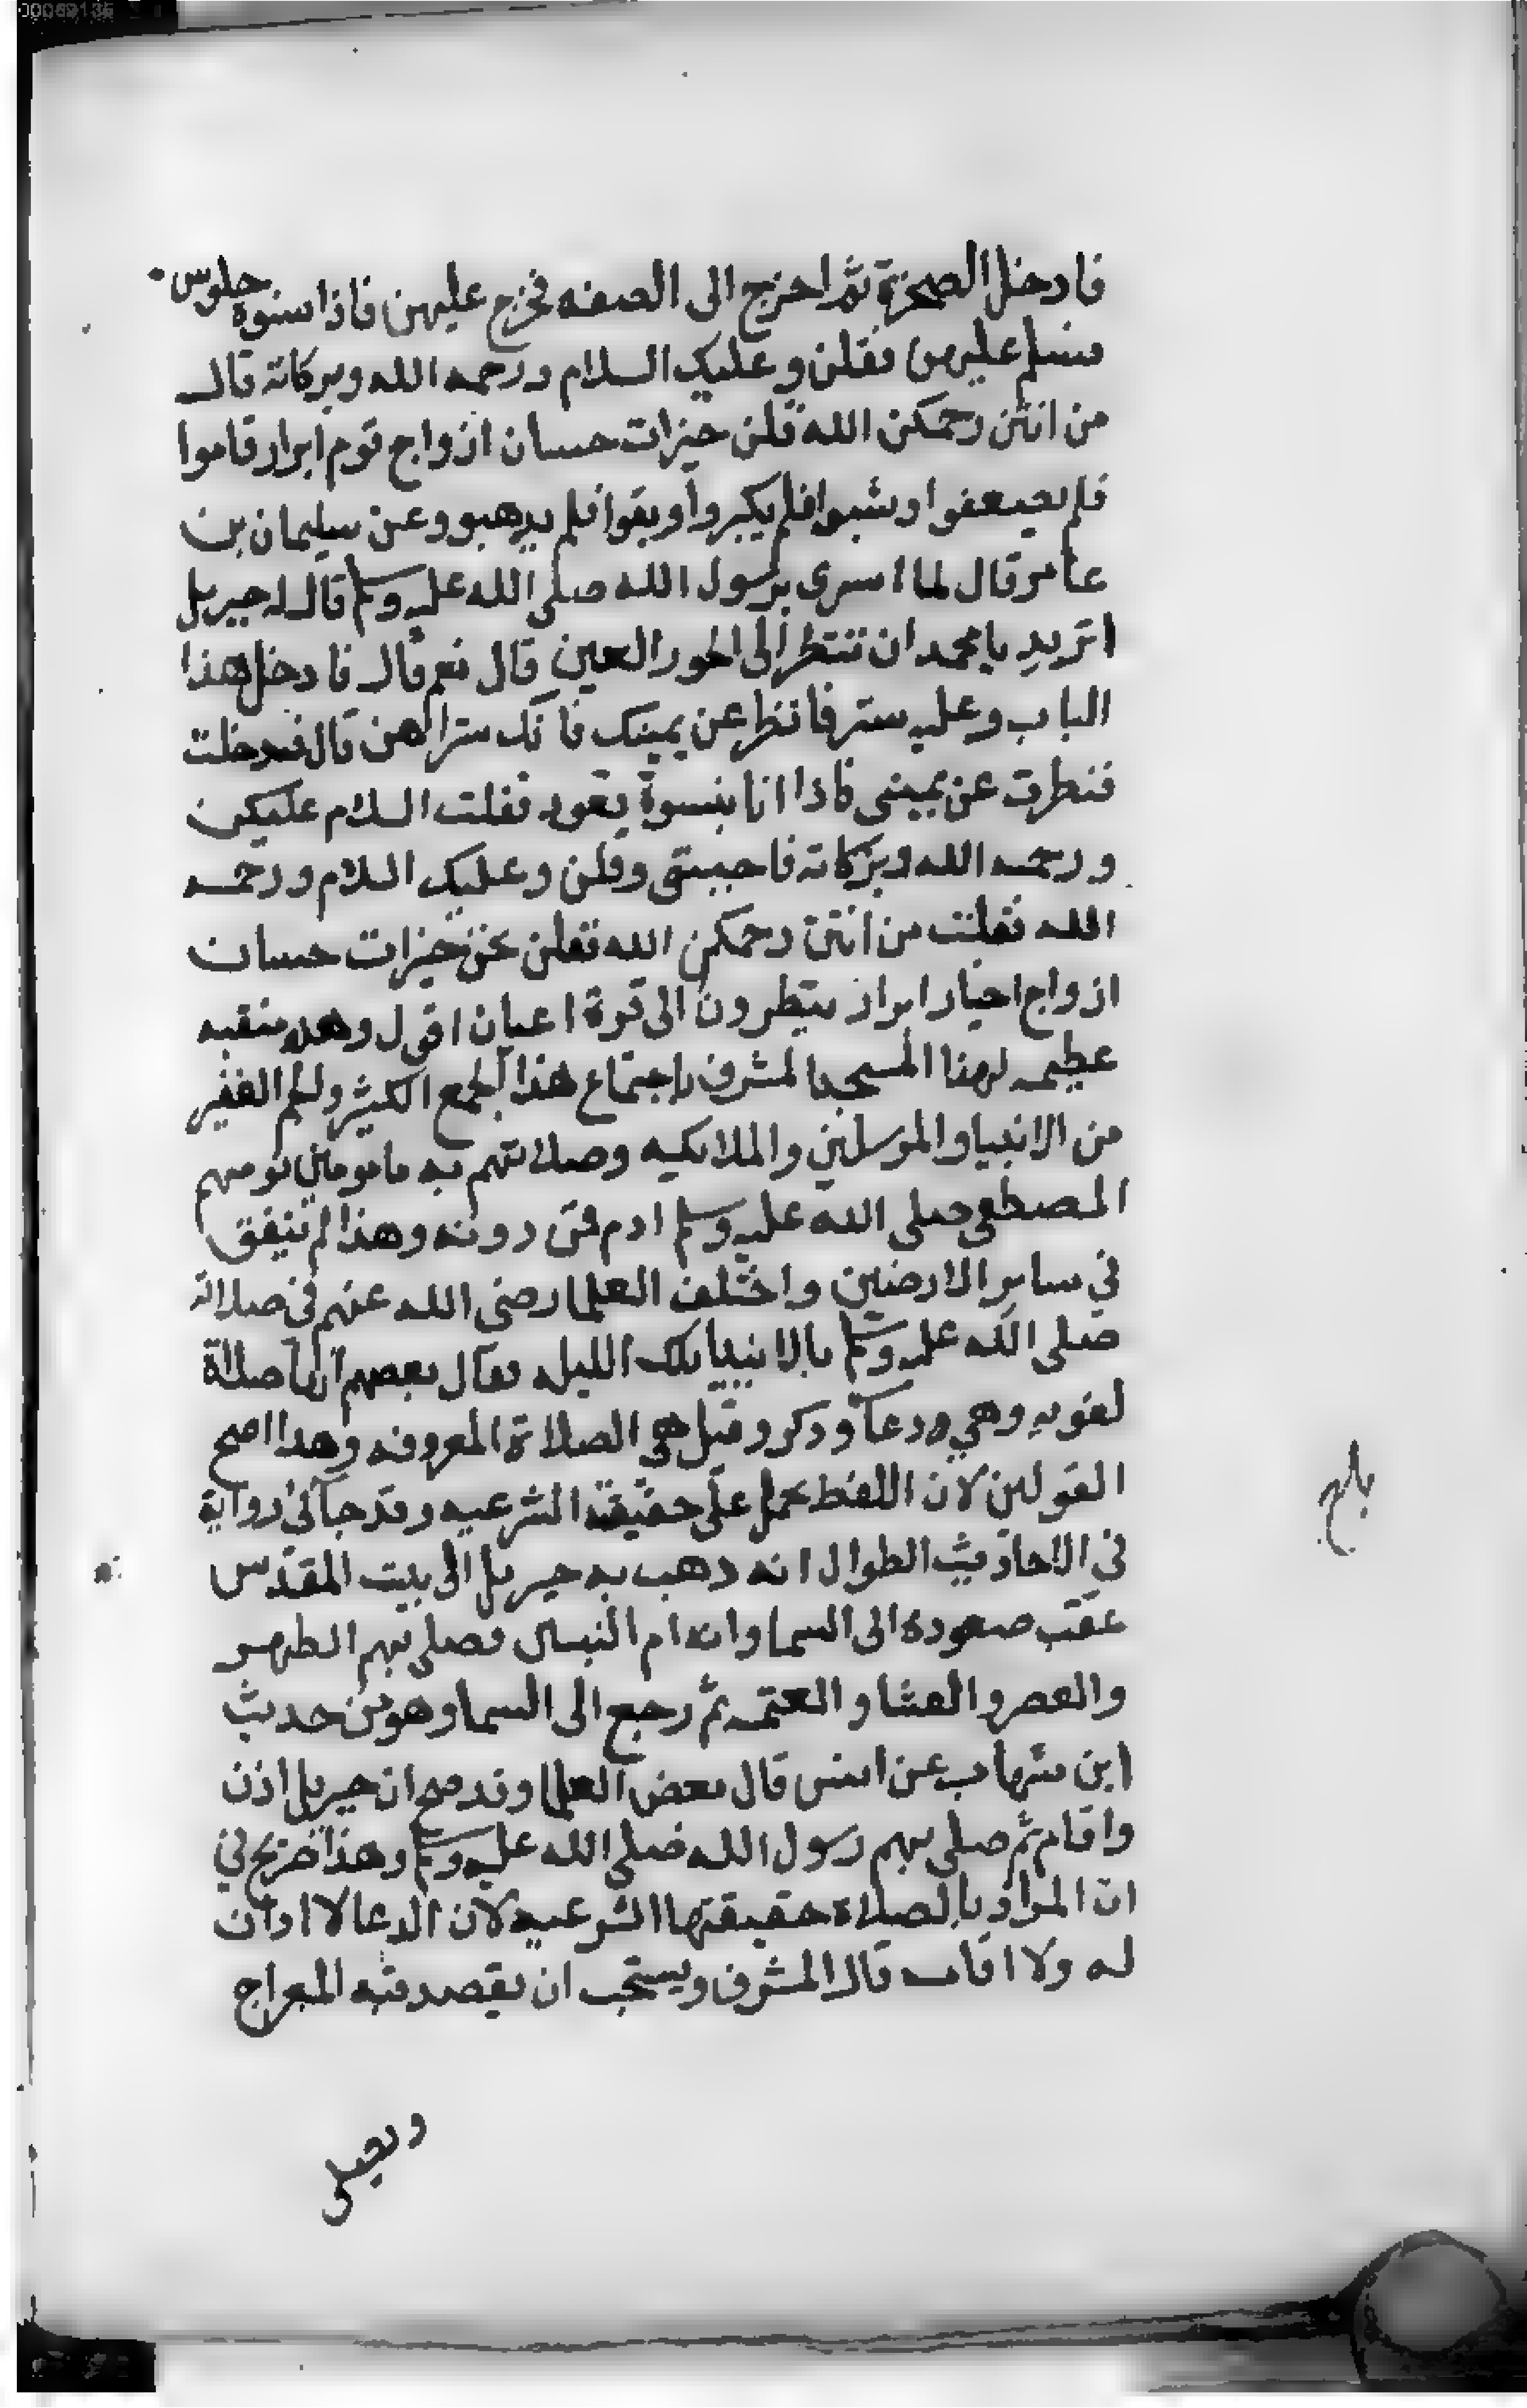 فادخل الصخرة ثم اخرج الى الصفه فخرج عليهن فاذا نسوة جلوس
فسلم عليهن فقلن وعليك السلام ورحمه الله وبركاته قال
من انتن رحمكن الله قلن خيرات حسان ازواج قوم ابرار قاموا
فلم يضعفوا وشبوا فلم يكبروا وبقوا فلم يدهبو وعن سليمان بن
عامر قال لما اسرى برسول الله صلى الله عليه وسلم قال له جبريل
اتريد يا محمد ان تنظر الى الحور العين قال نعم قال فادخل هذا
الباب وعليه ستر فانظر عن يمينك فانك سترا هن قال فدخلت
فنظرت عن يميني فاذا انا بنسوة قعود فقلت السلام عليكن
ورحمه الله وبركاته فاجبنني وقلن وعليك السلام ورحمه
الله فقلت من انتن رحمكن الله فقلن نحن خيرات حسان
ازواج اخيار ابرار ينظرون الى قرة اعيان اقول وهذه منقبه
عظيمه لهذا المسجد المشرف باجتماع هذا الجمع الكثير والجم الغفير
من الانبيا والمرسلين والملائكيه وصلاتهم به مامومين يومهم
المصطفى صلى الله عليه وسلم ادم فمن دونه وهذا لم يتفق
في ساير الارضين واختلف العلما رضى الله عنهم في صلاته
صلى الله عليه وسلم بالانبيا تلك الليله فقال بعضهم انها صلاة
لغويه وهي ودعا وذكر وقيل هي الصلاة المعروفه وهذا اصح
القولين لان اللفظ يحمل على حقيقته الشرعيه وقد جا في رواية
في الاحاديث الطوال انه ذهب به جبريل الى بيت المقدس
عقب صعوده الى السما وانه ام النبيين فصلى بهم الظهر
والعصر والعشا والعتمه ثم رجع الى السما وهو من حديث
ابن شهاب عن انس قال بعض العلما وقد صح ان جبريل اذن
واقام ثم صلى بهم رسول الله صلى الله عليه وسلم وهذا صريح في
ان المراد بالصلاة حقيقتها الشرعيه لان الدعا لا اذان
له ولا اقامه قال المشرف ويستحب ان يقصد قبه المعراج
ويصلى
بلغ